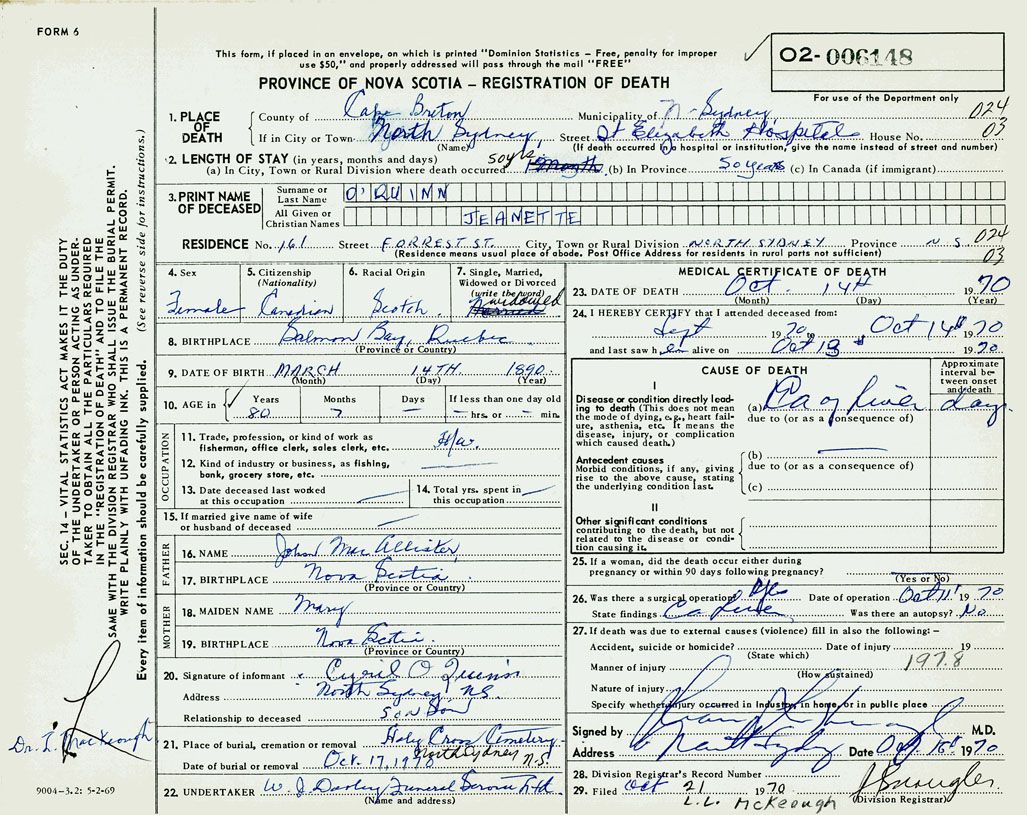 FORM 6
This form, if placed in an envelope, on which is printed "Dominion Statistics – Free, penalty for improper
use $50," and properly addressed will pass through the mail "FREE"
PROVINCE OF NOVA SCOTIA – REGISTRATION OF DEATH
02-006148
For use of the Department only
1. PLACE OF DEATH
County of Cape Breton Municipality of N-Sydney 024
If in City or Town North Sydney Street St Elizabeth Hospital House No. 03
(Name) (If death occurred in a hospital or institution, give the name instead of street and number)
2. LENGTH OF STAY (in years, months and days)
(a) In City, Town or Rural Division where death occurred 50 yrs. (b) In Province 50 years (c) In Canada (if immigrant)
3. PRINT NAME OF DECEASED
Surname or Last Name O'QUINN
All Given or Christian Names JEANETTE
RESIDENCE No. 161 Street FORREST ST. City, Town or Rural Division NORTH SYDNEY Province N S 024
(Residence means usual place of abode. Post Office Address for residents in rural ports not sufficient) 03
4. Sex Female
5. Citizenship (Nationality) Canadian
6. Racial Origin Scotch
7. Single, Married, Widowed or Divorced (write the word) widowed Married
8. BIRTHPLACE Salmon Bay, Quebec
(Province or Country)
9. DATE OF BIRTH MARCH 14TH 1890
(Month) (Day) (Year)
10. AGE in Years 80 Months 7 Days – If less than one day old
– hrs. or – min.
OCCUPATION
11. Trade, profession, or kind of work as
fisherman, office clerk, sales clerk, etc. H/W.
12. Kind of industry or business, as fishing,
bank, grocery store, etc.
13. Date deceased last worked
at this occupation
14. Total yrs. spent in
this occupation
15. If married give name of wife
or husband of deceased
FATHER
16. NAME John MacAllister
17. BIRTHPLACE Nova Scotia
(Province or Country)
MOTHER
18. MAIDEN NAME Mary
19. BIRTHPLACE Nova Scotia
(Province or Country)
20. Signature of informant Cyril O'Quinn
Address North Sydney N.S.
Relationship to deceased Son Son
21. Place of burial, cremation or removal Holy Cross Cemetery
North Sydney N.S.
Date of burial or removal Oct. 17, 1970
22. UNDERTAKER W. J. Dooley Funeral Service Ltd.
(Name and address)
MEDICAL CERTIFICATE OF DEATH
23. DATE OF DEATH Oct. 14th 1970
(Month) (Day) (Year)
24. I HEREBY CERTIFY that I attended deceased from:
Sept 1970 to Oct 14th 1970
and last saw her alive on Oct 13 1970
CAUSE OF DEATH
Approximate interval between onset and death
I
Disease or condition directly leading to death (This does not mean the mode of dying, e.g., heart failure, asthenia, etc. It means the disease, injury, or complication which caused death.)
(a) Ca of Liver days
due to (or as a consequence of)
Antecedent causes
Morbid conditions, if any, giving rise to the above cause, stating the underlying condition last.
(b)
due to (or as a consequence of)
(c)
II
Other significant conditions
contributing to the death, but not related to the disease or condition causing it.
25. If a woman, did the death occur either during
pregnancy or within 90 days following pregnancy?
(Yes or No)
26. Was there a surgical operation? Yes Date of operation Oct 11 1970
State findings Ca Liver Was there an autopsy? No
27. If death was due to external causes (violence) fill in also the following: –
Accident, suicide or homicide? Date of injury 19
(State which)
Manner of injury 197.8
(How sustained)
Nature of injury
Specify whether injury occurred in Industry, in home, or in public place
Signed by M.D.
Address North Sydney Date Oct 15th 1970
28. Division Registrar's Record Number
29. Filed Oct 21 1970
(Division Registrar)
L.L. McKeough
SEC. 14 – VITAL STATISTICS ACT MAKES IT THE DUTY
OF THE UNDERTAKER OR PERSON ACTING AS UNDER-
TAKER TO OBTAIN ALL THE PARTICULARS REQUIRED
IN THE "REGISTRATION OF DEATH" AND TO FILE THE
SAME WITH THE DIVISION REGISTRAR WHO SHALL ISSUE THE BURIAL PERMIT.
WRITE PLAINLY WITH UNFADING INK. THIS IS A PERMANENT RECORD.
Every item of information should be carefully supplied. (See reverse side for instructions.)
Dr. L. MacKeough
9004-3.2: 5-2-69